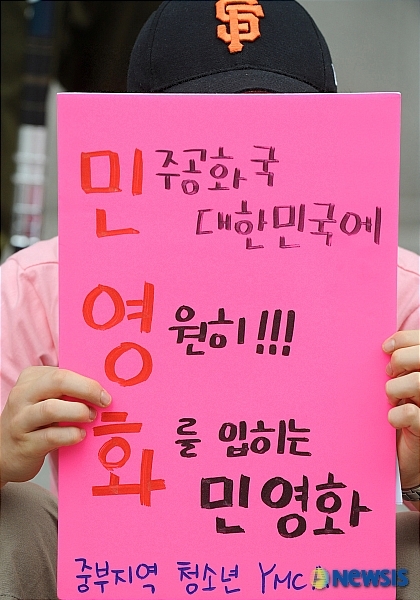 SF
민주공화국
대한민국에
영원히!!!
화를 입히는
민영화
중부지역 청소년 YMCA
NEWSIS